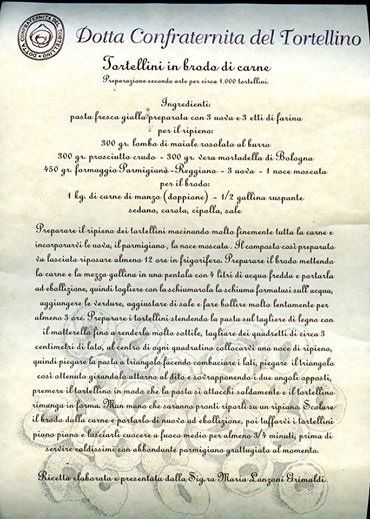 DOTTA CONFRATERNITA DEL TORTELLINO
Dotta Confraternita del Tortellino
Tortellini in brodo di carne
Preparazione secondo arte per circa 1.000 tortellini.
Ingredienti:
pasta fresca gialla preparata con 3 uova e 3 etti di farina
per il ripieno:
300 gr. lombo di maiale rosolato al burro
300 gr. prosciutto crudo - 300 gr. vera mortadella di Bologna
450 gr. formaggio Parmigiano - Reggiano - 3 uova - 1 noce moscata
per il brodo:
1 kg. di carne di manzo (doppione) - 1/2 gallina ruspante
sedano, carota, cipolla, sale
Preparare il ripieno dei tortellini macinando molto finemente tutta la carne e
incorporarvi le uova, il parmigiano, la noce moscata. Il composto così preparato
va lasciato riposare almeno 12 ore in frigorifero. Preparare il brodo mettendo
la carne e la mezza gallina in una pentola con 4 litri di acqua fredda e portarla
ad ebollizione, quindi tagliere con la schiumarola la schiuma formatasi sull'acqua,
aggiungere le verdure, aggiustare di sale e fare bollire molto lentamente per
almeno 3 ore. Preparare i tortellini stendendo la pasta sul tagliere di legno con
il matterello fino a renderla molto sottile, tagliare dei quadretti di circa 3
centimetri di lato, al centro di ogni quadratino collocarvi una noce di ripieno,
quindi piegare la pasta a triangolo facendo combaciare i lati, piegare il triangolo
così ottenuto girandolo attorno al dito e sovrapponendo i due angoli opposti,
premere il tortellino in modo che la pasta si attacchi saldamente e il tortellino
rimanga in forma. Man mano che saranno pronti riporli su un ripiano. Scolare
il brodo dalla carne e portarlo di nuovo ad ebollizione, poi tuffarvi i tortellini
piano piano e lasciarli cuocere a fuoco medio per almeno 3/4 minuti, prima di
servire caldissimi con abbondante parmigiano grattugiato al momento.
Ricetta elaborata e presentata dalla Sig.ra Maria Lanzoni Grimaldi.